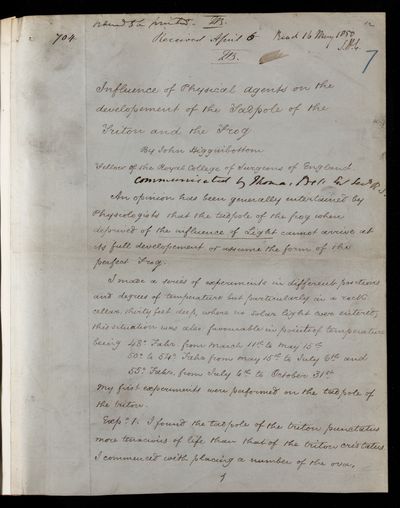 to be printed. TB.
704
Received April 6
Read 16 May 1850
TB.
7
Influence of Physical agents on the
developement of the Tadpole of the
Triton and the Frog
By John Higginbottom
Fellow of the Royal College of Surgeons of England
Communicated by Thomas Bell Esq Sec. R.S.
An opinion has been generally entertained by
Physiologists that the tadpole of the frog when
deprived of the influence of Light cannot arrive at
its full developement or assume the form of the
perfect Frog.
I made a series of experiments in different positions
and degrees of temperature but particularly in a rock
cellar thirty feet deep, where no solar light ever entered,
this situation was also favourable in point of temperature
being 48° Fahr from March 11th to May 15th
50° to 54° Fahr from May 15th to July 6th and
55° Fahr. from July 6th to October 31st
My first experiments were performed on the tadpole of
the triton.
Exp. 1. I found the tadpole of the triton punctatus
more tenacious of life than that of the triton cristatus.
I commenced with placing a number of the ova,
1